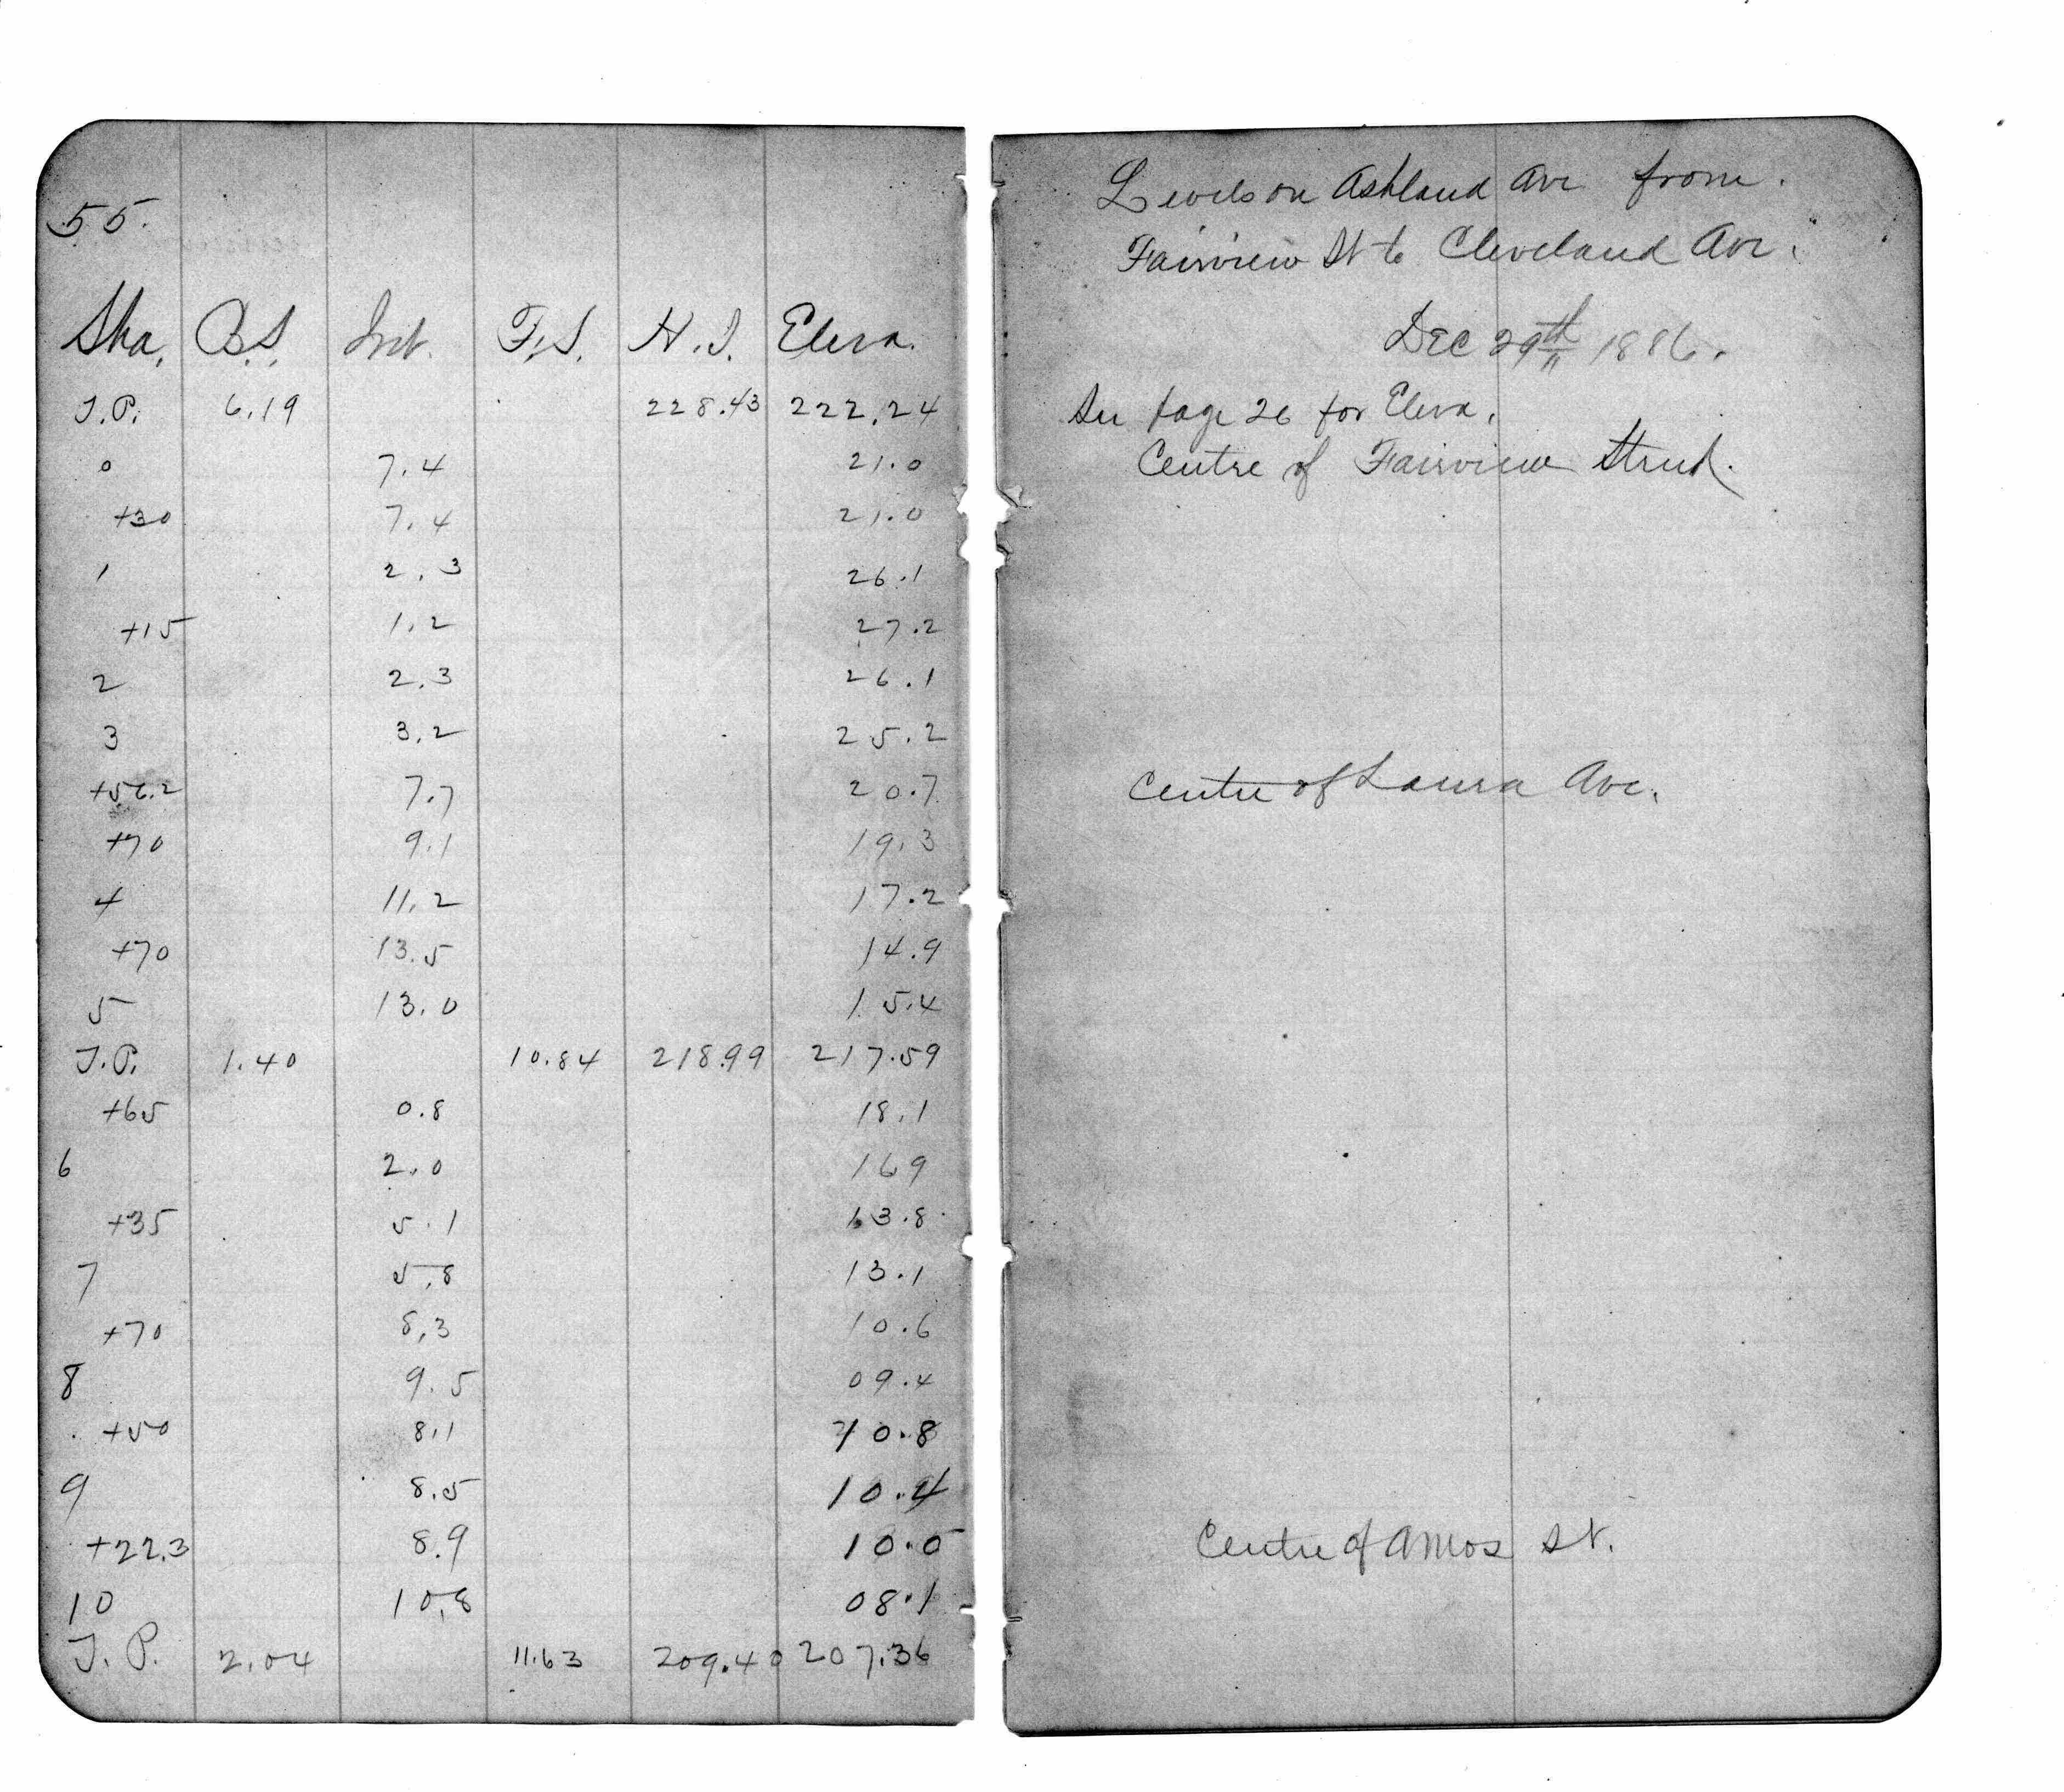 55.
Sta. B.S. Int. F.S. H.I. Eleva.
T.P. 6.19 228.43 222.24
0 7.4 21.0
+30 7.4 21.0
1 2.3 26.1
+15 1.2 27.2
2 2.3 26.1
3 3.2 25.2
+56.2 7.7 20.7
+70 9.1 19.3
4 11.2 17.2
+70 13.5 14.9
5 13.0 15.4
T.P. 1.40 10.84 218.99 217.59
+65 0.8 18.1
6 2.0 169
+35 5.1 13.8
7 5.8 13.1
+70 8.3 10.6
8 9.5 09.4
+50 8.1 10.8
9 8.5 10.4
+22.3 8.9 10.0
10 10.8 08.1
T.P. 2.04 11.63 209.40 207.36
Levels on Ashland Ave from
Fairview St to Cleveland Ave.
Dec 29th 1886.
See page 26 for Eleva.
Centre of Fairview Street.
Centre of Laura Ave.
Centre of Amos St.